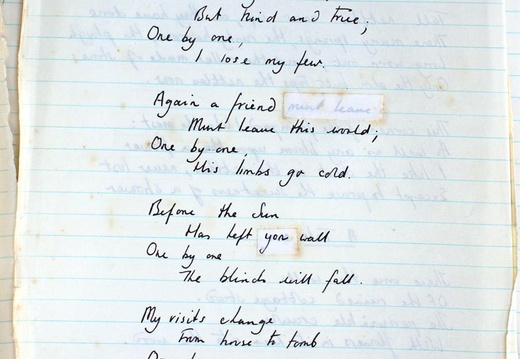 But kind and true;
One by one,
I lose my few.
Again a friend must leave
Must leave this world;
One by one
His limbs go cold.
Before the Sun
Has left yon wall
One by one
The blinds will fall.
My visits change
From house to tomb